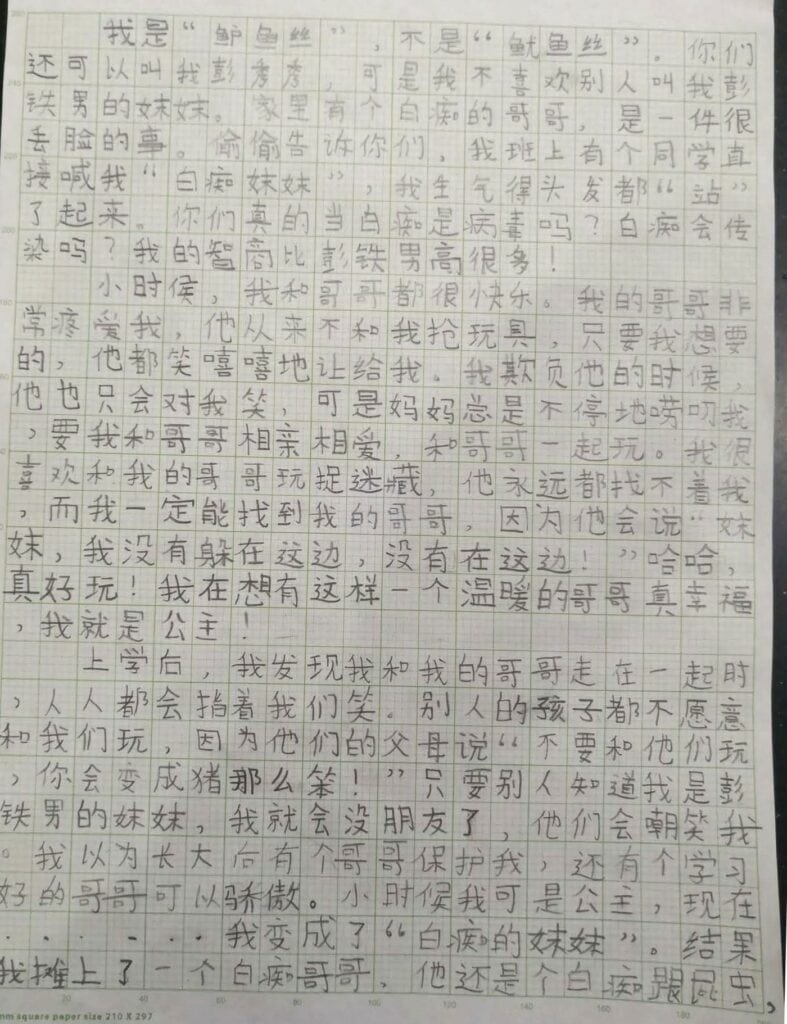 我是“鲈鱼丝”，不是“鱿鱼丝”。你们
还可以叫我彭秀秀，可是我不喜欢别人叫我彭
铁男的妹妹。家里有个白痴的哥哥，是一件很
丢脸的事。偷偷告诉你们，我班上有个同学直
接喊我“白痴妹妹”，我生气得头发都“站”
了起来。你们真的当白痴是病毒吗？白痴会传
染吗？我的智商比彭铁男高很多！
小时侯，我和哥哥都很快乐。我的哥哥非
常疼爱我，他从来不和我抢玩具，只要我想要
的，他都笑嘻嘻地让给我。我欺负他的时候，
他也只会对我笑，可是妈妈总是不停地唠叨我
，要我和哥哥相亲相爱，和哥哥一起玩。我很
喜欢和我的哥哥玩捉迷藏，他永远都找不着我
，而我一定能找到我的哥哥，因为他会说“妹
妹，我没有躲在这边，没有在这边！”哈哈，
真好玩！我在想有这样一个温暖的哥哥真幸福
，我就是公主！
上学后，我发现我和我的哥哥走在一起时
，人人都会指着我们笑。别人的孩子都不愿意
和我们玩，因为他们的父母说“不要和他们玩
，你会变成猪那么笨！”只要别人知道我是彭
铁男的妹妹，我就会没朋友了，他们会嘲笑我
。我以为长大后有个哥哥保护我，还有个学习
好的哥哥可以骄傲。小时候我可是公主，现在
......我变成了“白痴的妹妹”。结果
我摊上了一个白痴哥哥，他还是个白痴跟屁虫，
20 40 60 80 100 120 140 160 180
mm square paper size 210 X 297